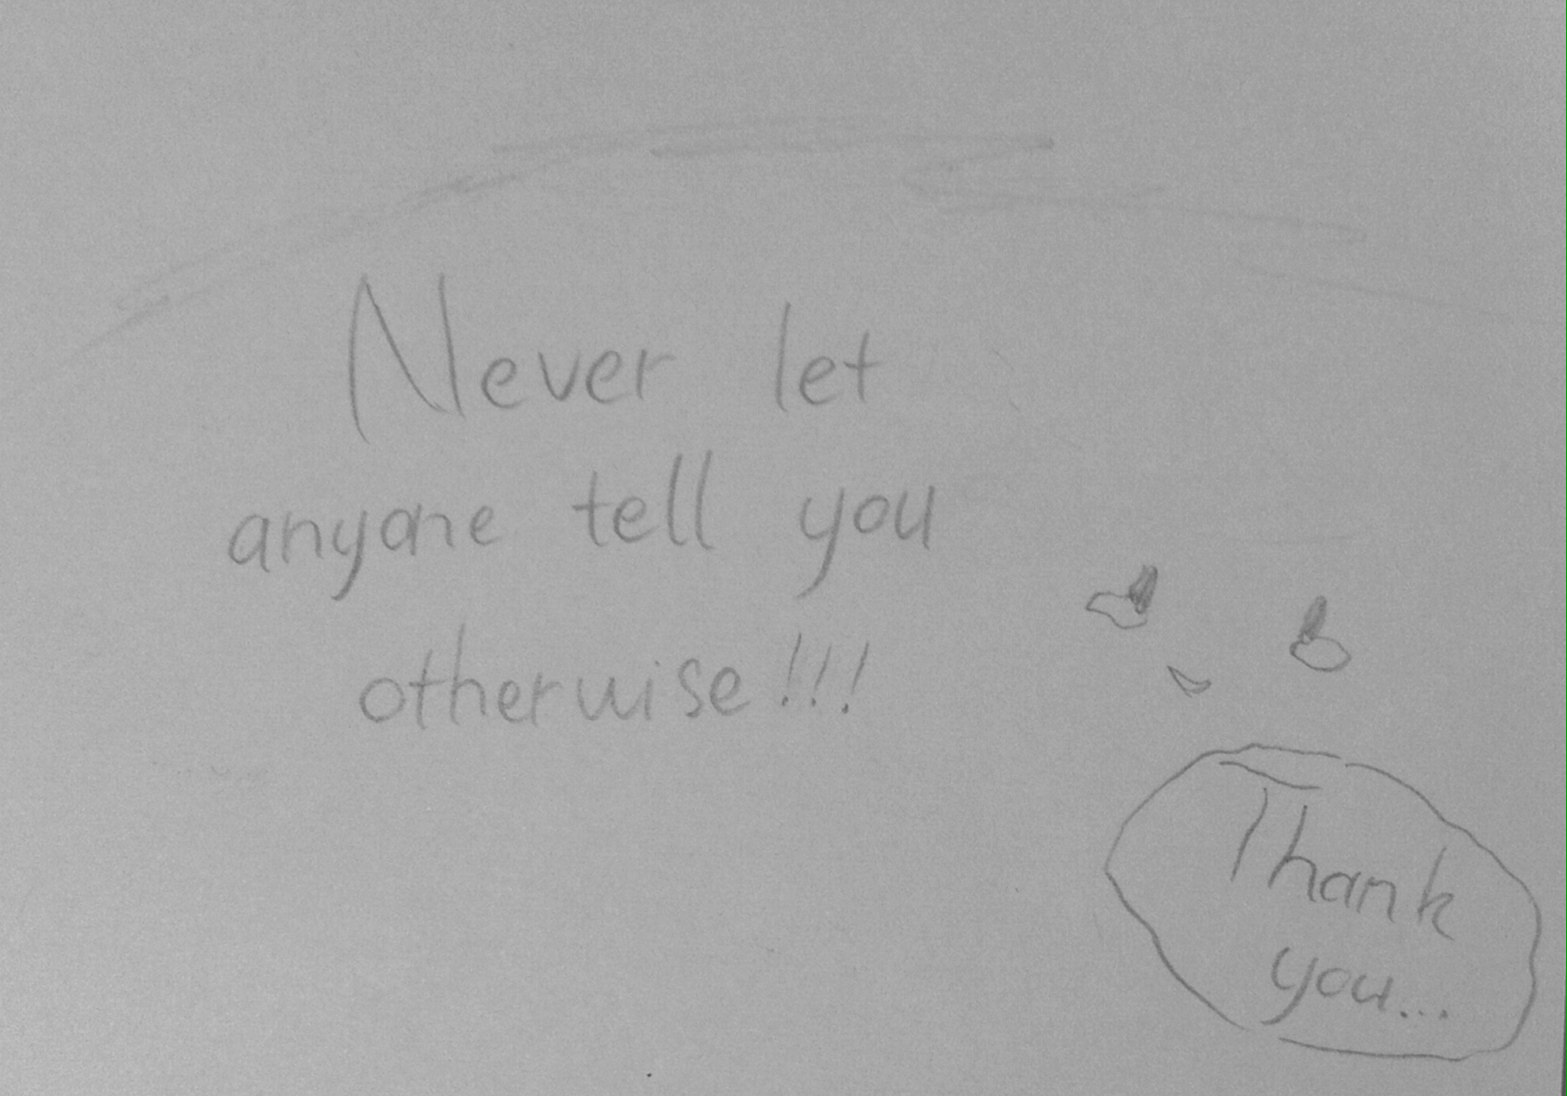 Never let
anyone tell you
otherwise!!!
Thank
you...